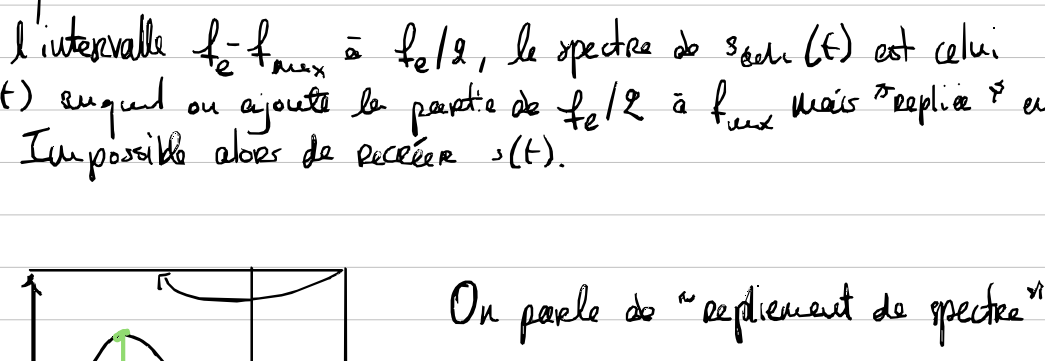 l'intervalle fe-fmax à fe/2, le spectre de séch (t) est celui
t) auquel on ajoute la partie de fe/2 à fmax mais "replié" e
Impossible alors de recréer s(t).
On parle de "repliement de spectre"